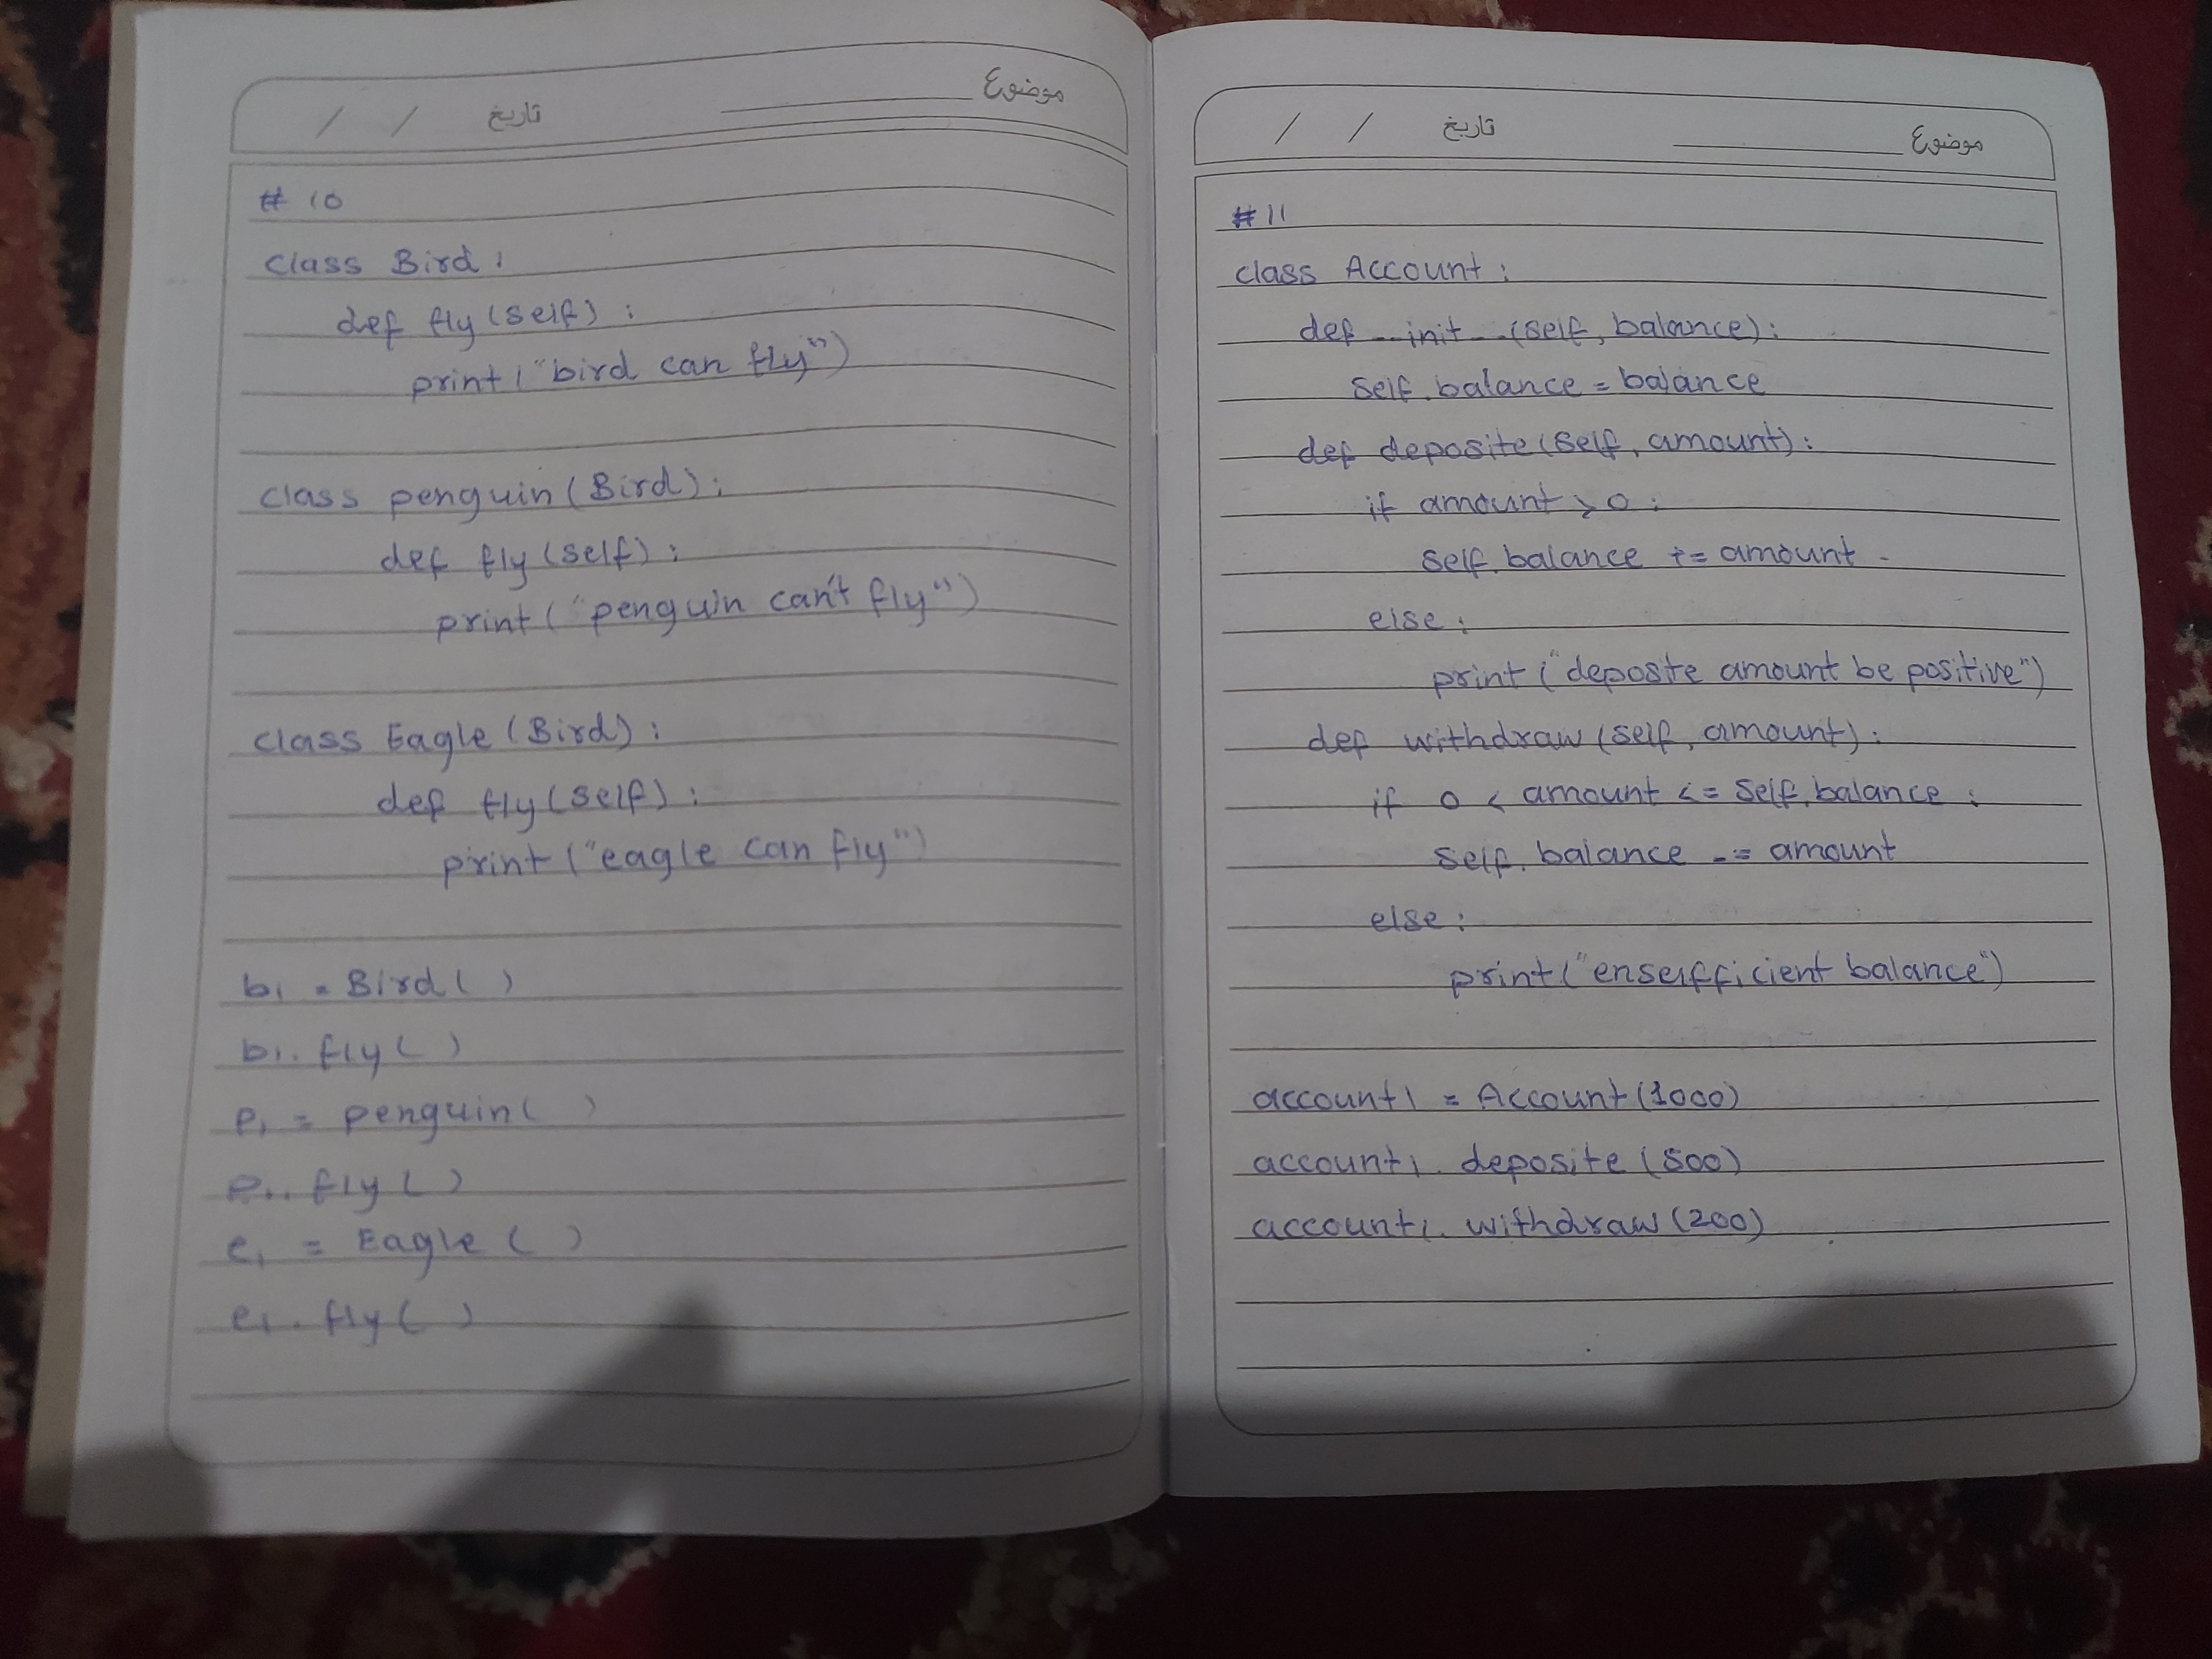 / / تاريخ موضوع
# 10
class Bird:
def fly(self):
print("bird can fly")
class penguin(Bird):
def fly(self):
print("penguin can't fly")
class Eagle(Bird):
def fly(self):
print("eagle can fly")
b1 = Bird( )
b1.fly( )
p1 = penguin( )
p1.fly( )
e1 = Eagle( )
e1.fly( )
/ / تاريخ موضوع
# 11
class Account:
def __init__(self, balance):
self.balance = balance
def deposite(self, amount):
if amount > 0:
self.balance += amount
else:
print("deposite amount be positive")
def withdraw(self, amount):
if 0 < amount <= self.balance:
self.balance -= amount
else:
print("enselfficient balance")
account1 = Account(1000)
account1.deposite(500)
account1.withdraw(200)